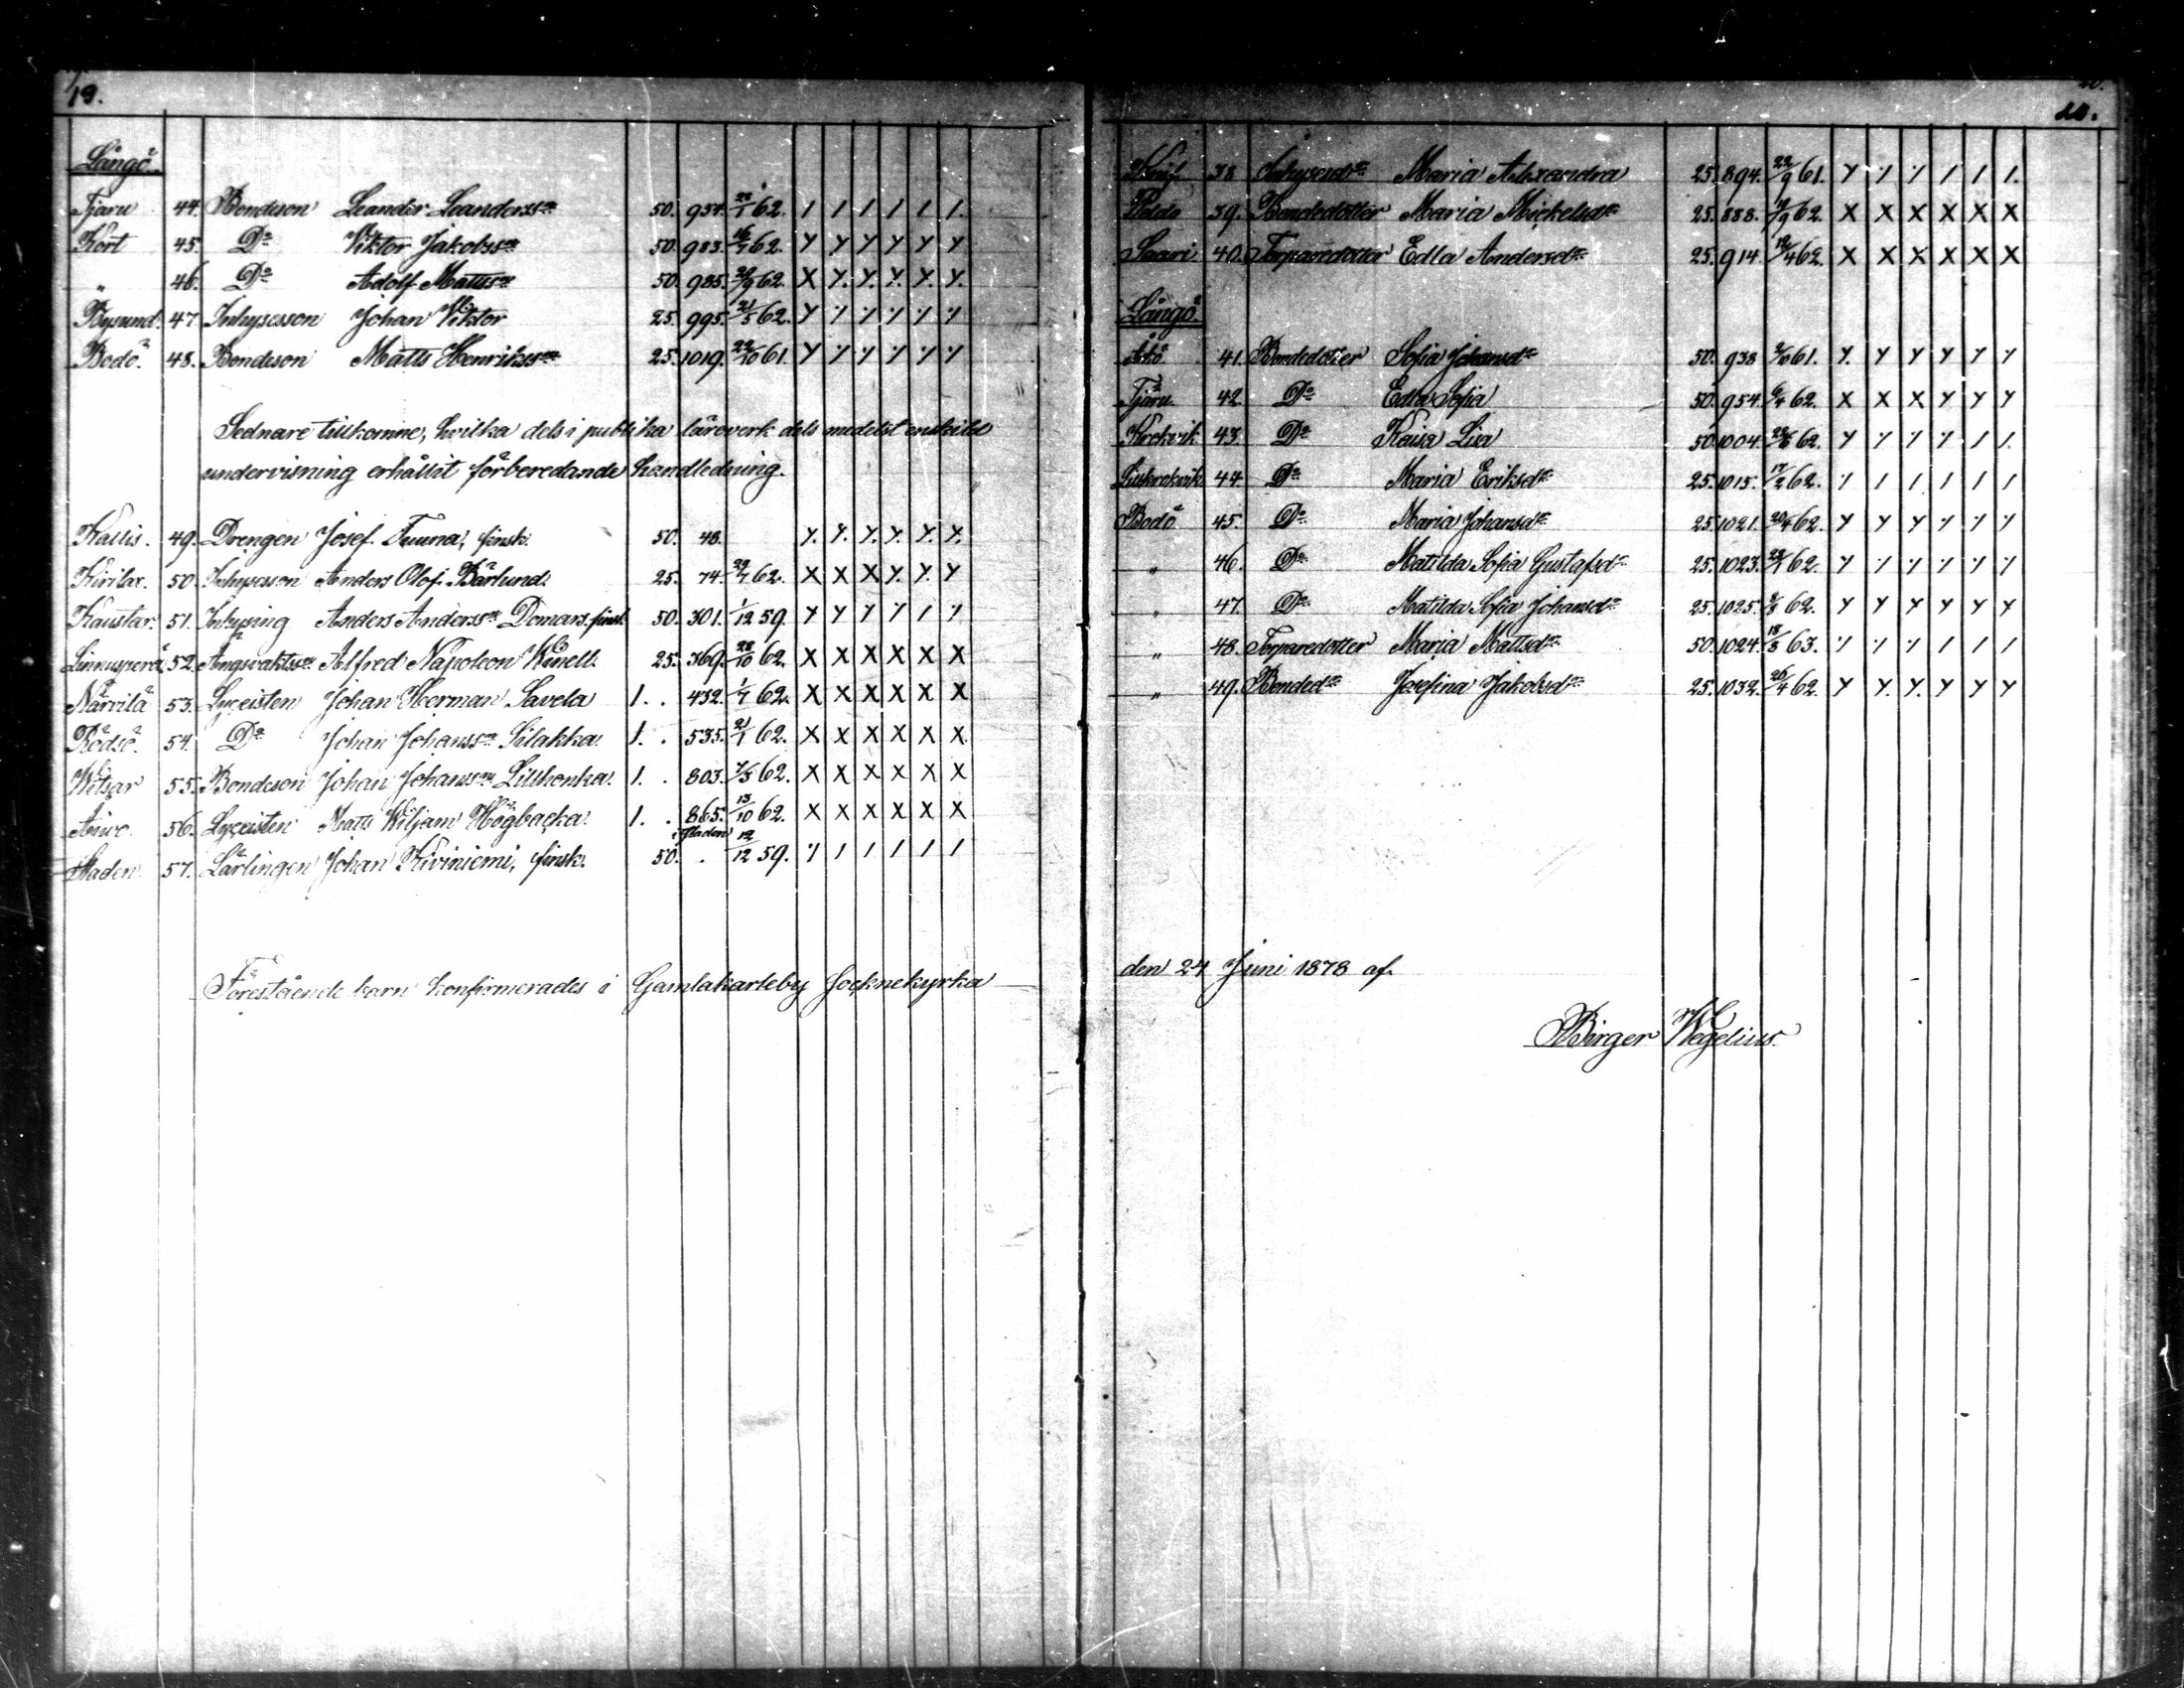 19.
Långö.
Tjäru 44. Bondeson Leander Leanderss:n 50. 954. 20/1 62. / / / / / /.
Kort 45. D:o Viktor Jakobss:n 50. 983. 16/7 62. Y Y Y Y Y Y
" 46. D:o Adolf Mattss:n 50. 985. 29/9 62. X Y. Y. Y. Y. Y.
Bysund. 47. Inhysesson Johan Viktor 25. 995. 21/5 62. Y
Bodö. 48. Bondeson Matts Henrikss:n 25. 1019. 22/10 61. Y
Sednare tillkomne, hvilka dels i publika läroverk dels medelst enskild
undervisning erhållit förberedande handledning.
Kallis. 49. Drengen Josef Tuuna, finsk. 50. 48. Y. Y. Y. Y. Y. Y.
Kirilax. 50. Inhysesson Anders Olof Bärlund. 25. 74 29/7 62. X X X Y. Y. Y
Kaustar. 51. Inhysing Anders Anderss:n Domars. finsk 50. 301. 1/12 59. Y Y
Linnusperä. 52. Ängvaktss:n Alfred Napoleon Winell. 25. 369. 28/10 62. X X X X X X
Närvilä 53. Lyceisten Johan Herman Savela 1. . 432. 1/7 62. X X X X X X
Rödsö. 54. D:o Johan Johanss:n Silakka. 1. . 535. 21/1 62. X X X X X X
Witsar 55. Bondeson Johan Johanss:n Lillhonka. 1. . 803. 7/5 62. X X X X X X
Aivo. 56. Lyceisten Matts Wiljam Högbacka. 1. . 865. 13/10 62. X X X X X X
Staden. 57. Lärlingen Johan Kiviniemi, finsk. 50. . i Staden 12/12 59. / / / / /
Förestående barn konfirmerades i Gamlakarleby Socknekyrka
20.
38 Inhysesd:r Maria Alexandra 25. 894. 22/9 61. Y / / /.
39. Bondedotter Maria Mickelsd:r 25. 888. 14/9 62. X X X X X X
Saari 40. Torparedotter Edla Andersd:r 25. 914. 12/4 62. X X X X X X
Långö.
41. Bondedotter Sofia Johansd:r 50. 938 61. Y. Y Y Y Y Y
Tjäru 42. D:o Edla Sofia 50. 954. 6/4 62. X X X Y Y Y
Krokvik 43. D:o Kaisa Lisa 50. 1004. 62. Y
Lillkrokvik 44. D:o Maria Eriksd:r 25. 1015. 17/2 62. / / / / /
Bodö 45. D:o Maria Johansd:r 25. 1021. 20/4 62. Y Y Y
" 46. D:o Matilda Sofia Gustafsd:r 25. 1023. 62. Y
" 47. D:o Matilda Sofia Johansd:r 25. 1025. 62. Y Y Y Y Y Y
" 48. Torparedotter Maria Mattsd:r 50. 1024. 18/8 63. / / /
" 49. Bonded:r Josefina Jakobsd:r 25. 1032. 26/4 62. Y Y. Y. Y Y Y
den 24 Juni 1878 af.
Birger Wegelius.